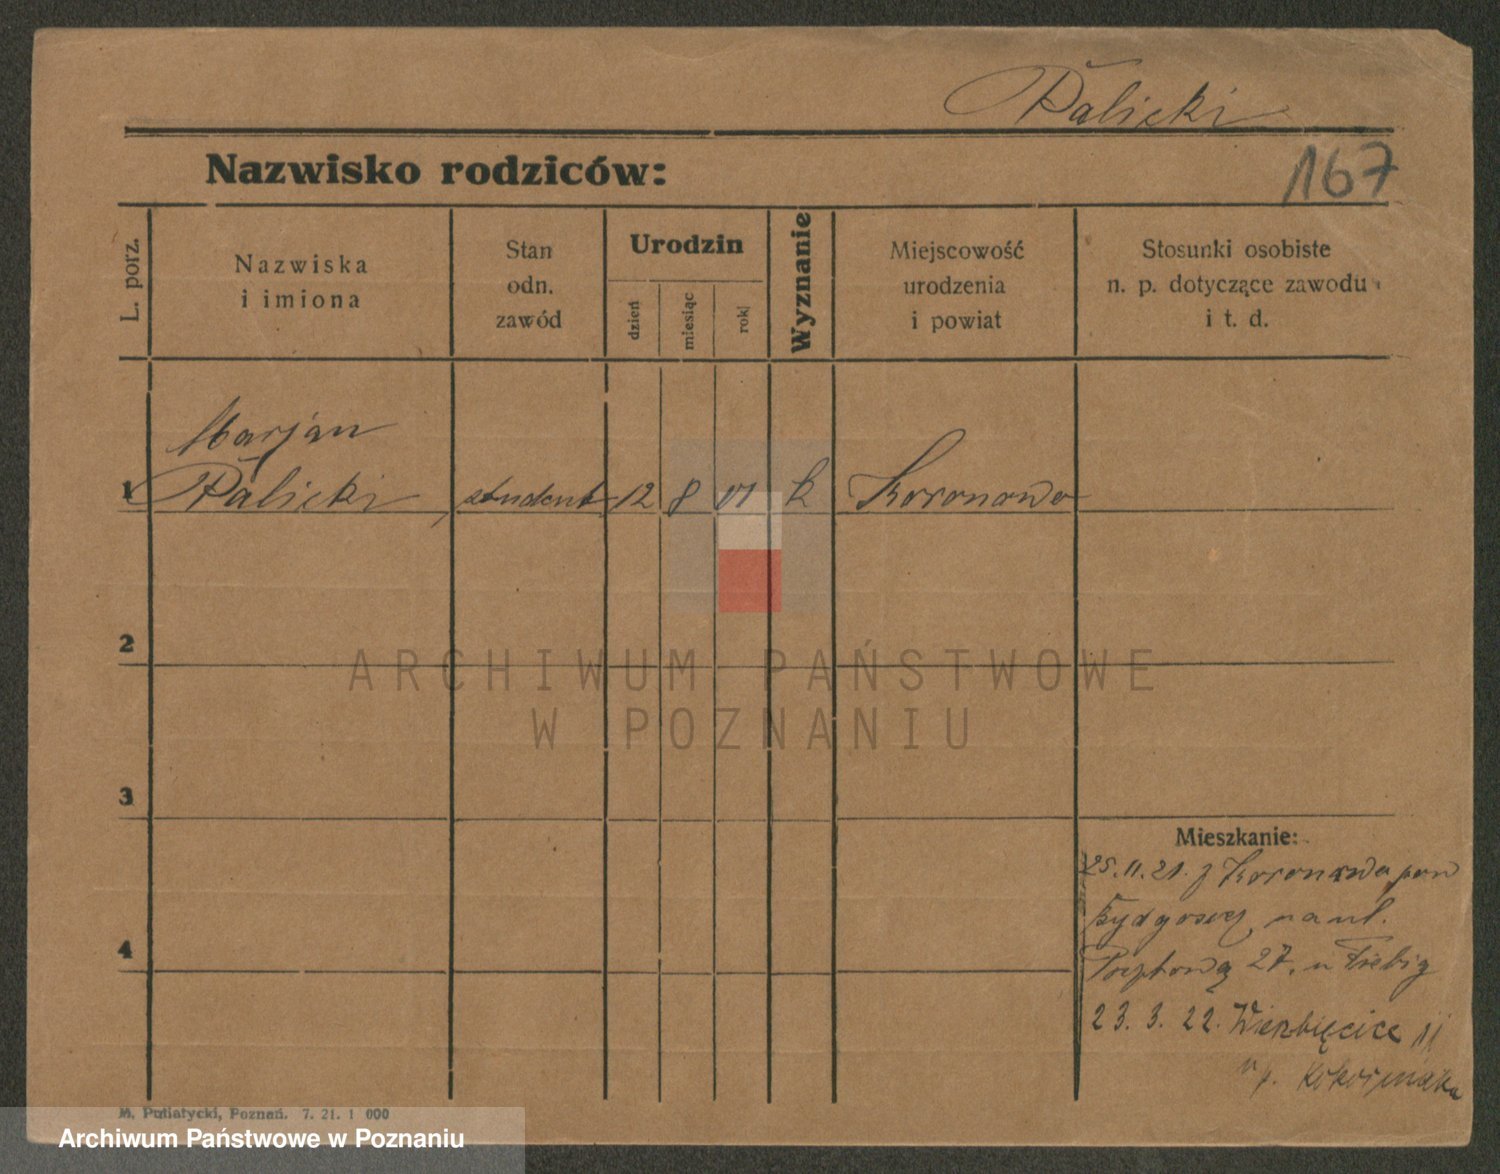 Palicki
Nazwisko rodziców:
167
L. porz.
Nazwiska
i imiona
Stan
odn.
zawód
Urodzin
dzień
miesiąc
rok
Wyznanie
Miejscowość
urodzenia
i powiat
Stosunki osobiste
n. p. dotyczące zawodu
i t. d.
Marjan
1 Palicki student 12 8 01 k Koronowo
2
ARCHIWUM PAŃSTWOWE
W POZNANIU
3
Mieszkanie:
25.11.21. z Koronowa pow
Bydgoscz na ul.
4
Pocztową 27. u Fiebig
23. 3. 22. Wierzbięcice 11
M. Putiatycki, Poznań. 7. 21. 1 000
Archiwum Państwowe w Poznaniu